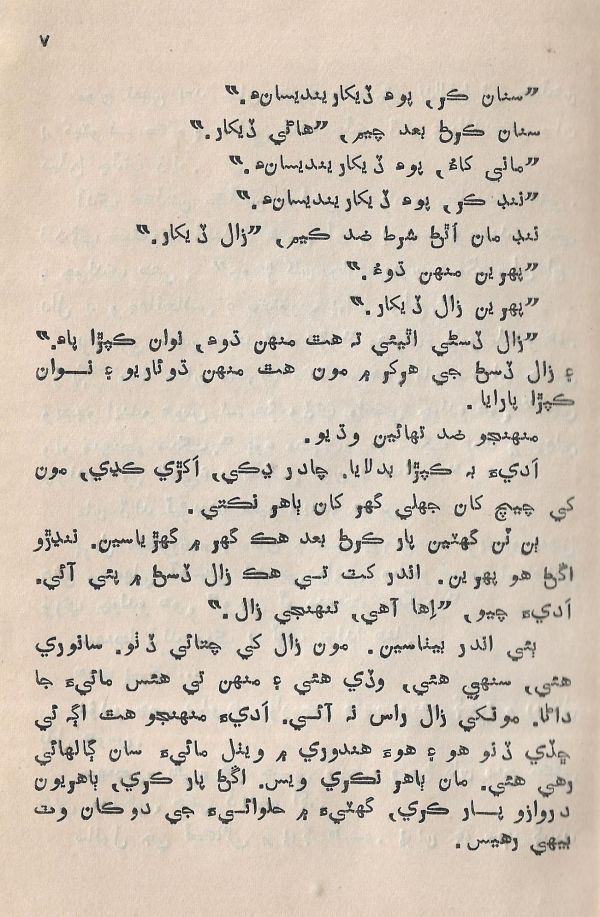 ٧
”سنان ڪر, پوءِ ڏيکاريندسانءِ.”
سنان ڪرڻ بعد چيم, ”هاڻي ڏيکار.”
”ماني کاءُ, پوءِ ڏيکاريندسانءِ.”
”ننڊ ڪر, پوءِ ڏيکاريندسانءِ.”
ننڊ مان اٿڻ شرط ضد ڪيم, ”زال ڏيکار.”
”پهرين منهن ڌوءُ.”
”پهرين زال ڏيکار.”
”زال ڏسڻي اٿيئي ته هٿ منهن ڌوءِ, نوان ڪپڙا پاءِ.”
۽ زال ڏسڻ جي هرکر ۾ مون هٿ منهن ڌوئاريو ۽ نوان
ڪپڙا پارايا.
منهنجو ضد تهائين وڌيو.
اَديءَ به ڪپڙا بدلايا. چادر ڍڪي, اکڙي ڪڍي, مون
کي چيچ کان جهلي گهر کان ٻاهر نڪتي.
ٻن ٽن گهٽين پار ڪرڻ بعد هڪ گهر ۾ گهڙياسين. ننڍڙو
اڱڻ هو پهرين. اندر کٽ تي هڪ زال ڏسڻ ۾ پئي آئي.
اَديءَ چيو, ”اِها آهي, تنهنجي زال.”
ٻئي اندر بيٺاسين. مون زال کي چتائي ڏٺو. سانوري
هئي, سنهي هئي, وڏي هئي ۽ منهن تي هئس مائيءَ جا
داڻا. مونکي زال راس نه آئي. اَديءَ منهنجو هٿ اڳه ئي
ڇڏي ڏنو هو ۽ هوءَ هندوري ۾ ويٺل مائيءَ سان ڳالهائي
رهي هئي. مان ٻاهر نڪري ويس. اڱڻ پار ڪري, ٻاهريون
دروازو پار ڪري, گهٽيءَ ۾ حلوائيءَ جي دوڪان وٽ
بيهي رهيس.